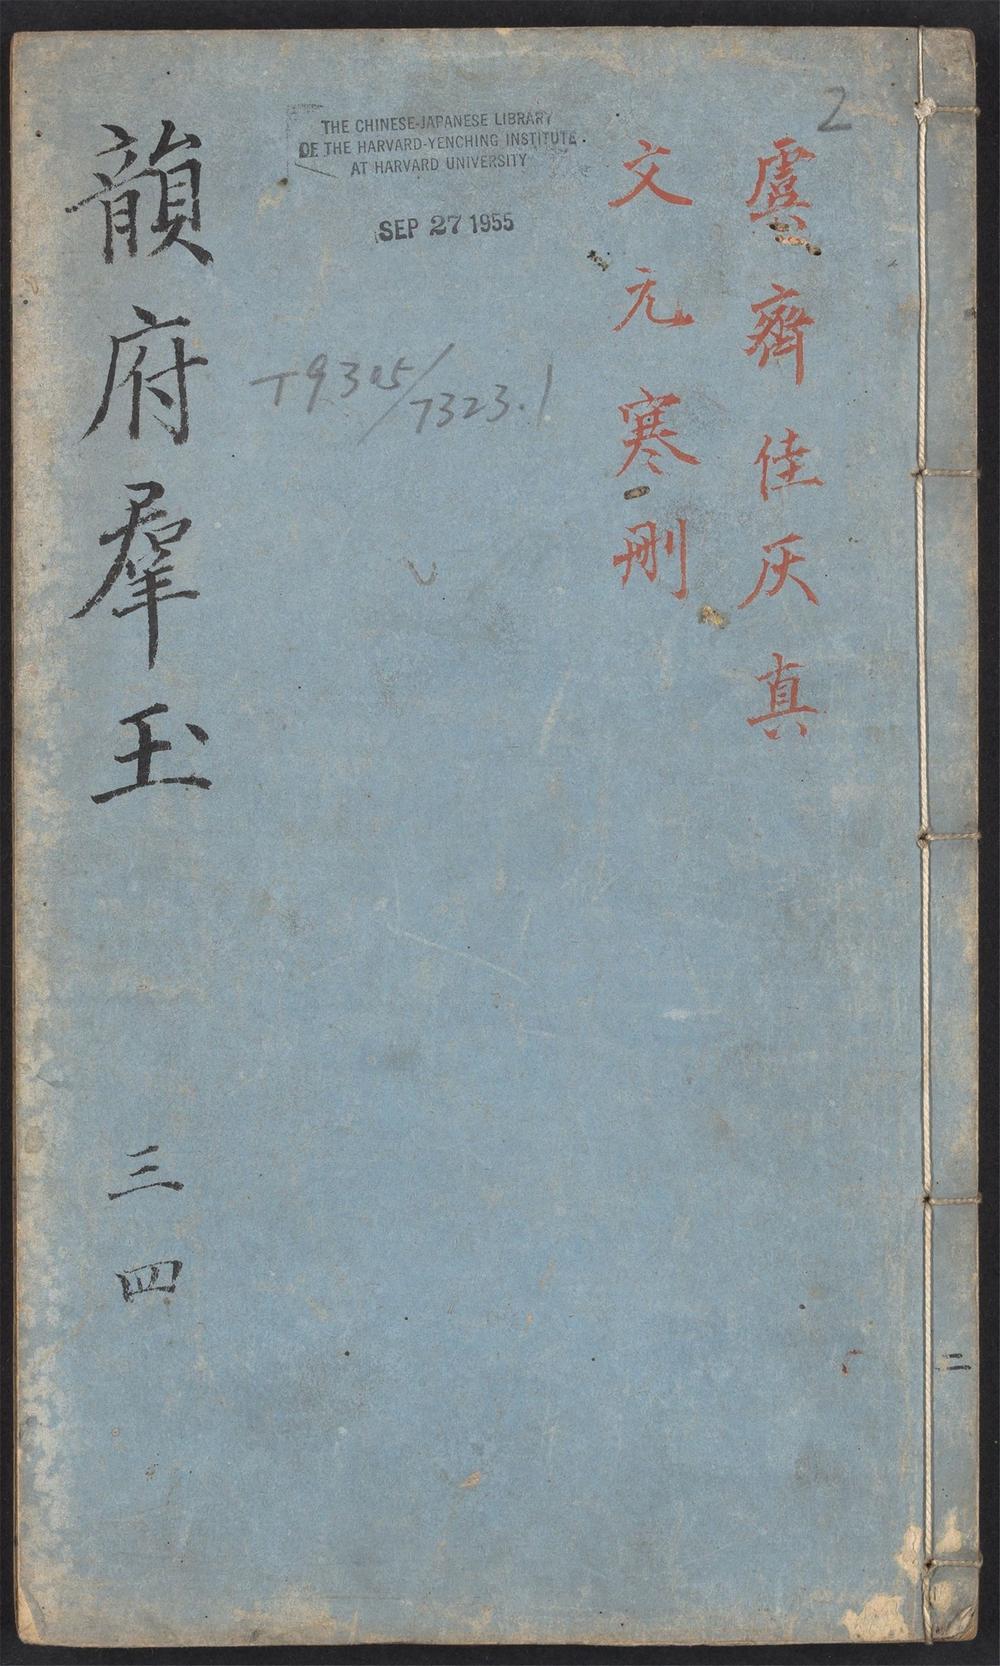 2
虞齊佳灰真
文元寒刪
THE CHINESE-JAPANESE LIBRARY
OF THE HARVARD-YENCHING INSTITUTE
AT HARVARD UNIVERSITY
SEP 27 1955
T9305/7323.1
韻府羣玉
三四
二